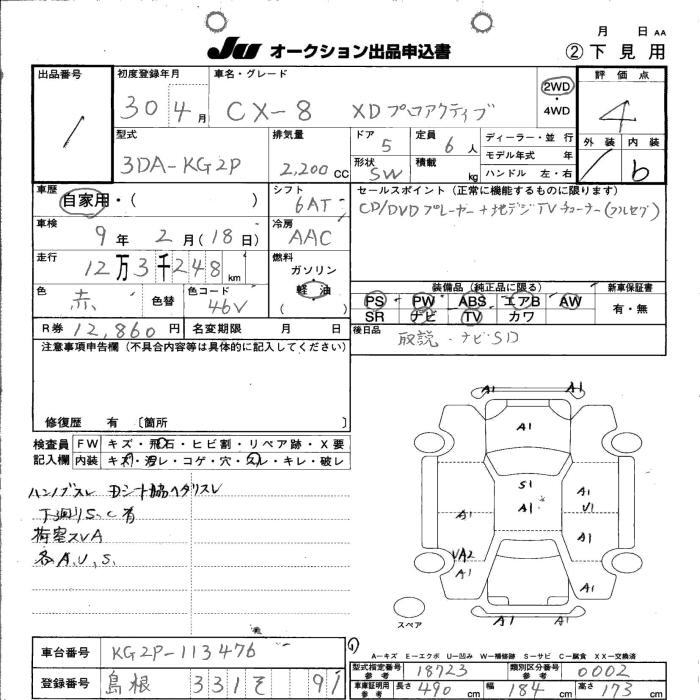 月 日 AA
JU オークション出品申込書 ②下見用
出品番号 初度登録年月 車名・グレード 2WD・4WD 評価点
1 30 4月 CX-8 XDプロアクティブ 4
型式 排気量 ドア 定員 ディーラー・並行 外装 内装
3DA-KG2P 2,200 CC 5 6人 モデル年式 年 b
形状 SW 積載 kg ハンドル 左・右
車歴 自家用・( ) シフト 6AT セールスポイント (正常に機能するものに限ります)
車検 9年 2月(18日) 冷房 AAC CD/DVDプレーヤー+地デジTVチューナー(フルセグ)
走行 12万3千248km 燃料 ガソリン 軽油 ( )
装備品 (純正品に限る) 新車保証書
色 赤 色替 色コード 46V PS PW ABS エアB AW 有・無
SR ナビ TV カワ
R券 12,860円 名変期限 月 日 後日品 取説・ナビSD
注意事項申告欄 (不具合内容等は具体的に記入してください)
修復歴 有 〔箇所 〕
検査員 FW キズ・飛石・ヒビ割・リペア跡・X要
記入欄 内装 キズ・汚レ・コゲ・穴・スレ・キレ・破レ
ハンドルスレ Dシート脇ヘタリスレ
下廻りS,C有
荷室スレA
各A,U,S,
A1 A1
A1
S1
A1
A1
U1
A1
A1
UA2
A1
A1
A1 A1
スペア
A-キズ E-エクボ U-凹み W-補修跡 S-サビ C-腐食 XX-交換済
車台番号 KG2P-113476
型式指定番号 参考 18723 類別区分番号 参考 0002
登録番号 島根 331 そ 91
車庫証明用 参考 長さ 490cm 幅 184cm 高さ 173cm